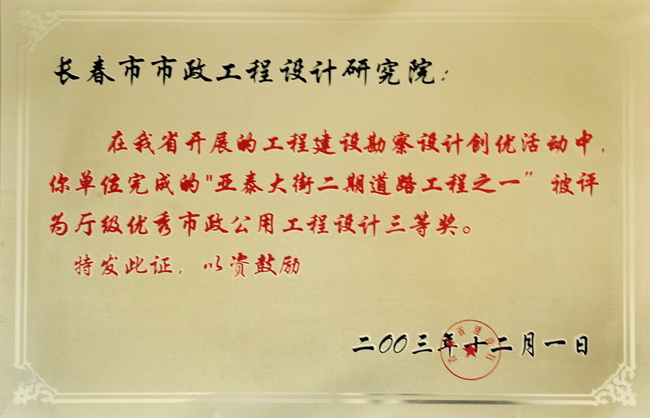 长春市市政工程设计研究院：
在我省开展的工程建设勘察设计创优活动中，
你单位完成的"亚泰大街二期道路工程之一”被评
为厅级优秀市政公用工程设计三等奖。
特发此证，以资鼓励
二00三年十二月一日